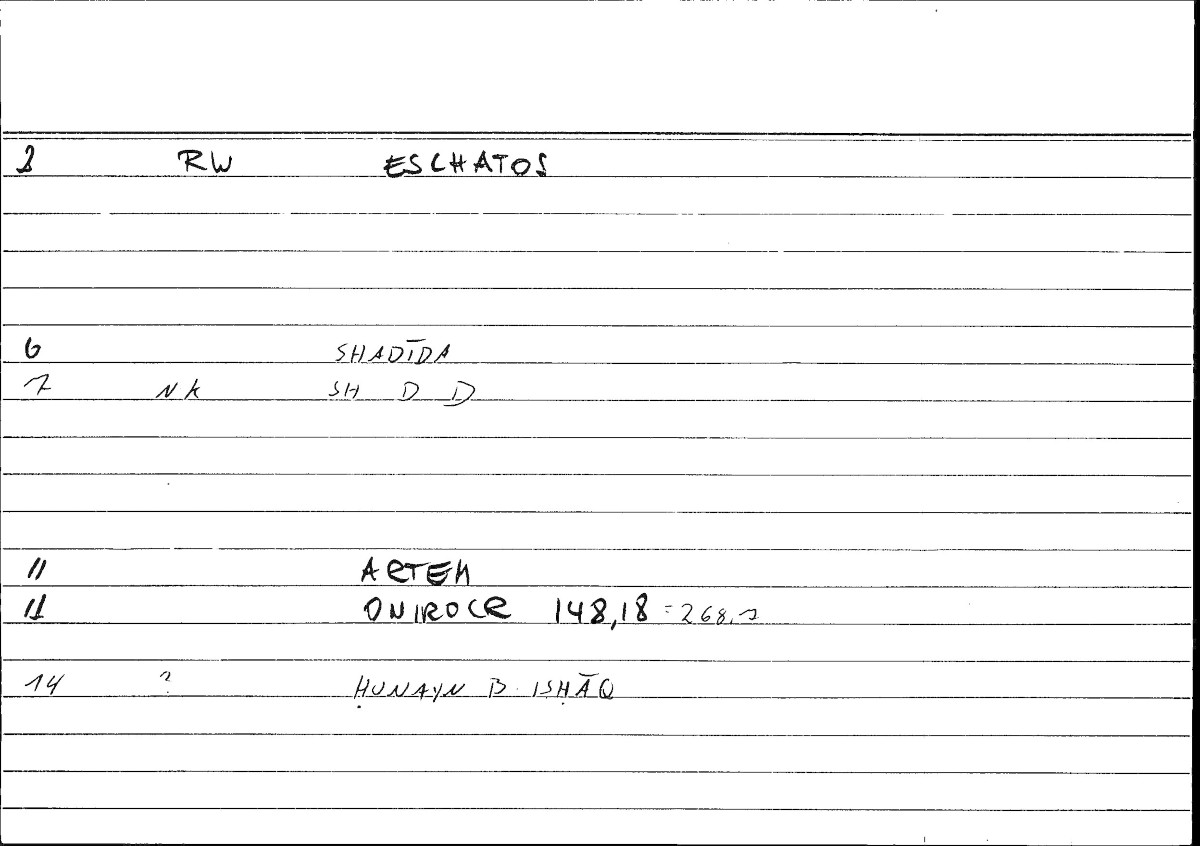 1 RW ESCHATOS
6 SHADĪDA
7 NK SH D D
11 ARTEM
11 ONIROCR 148,18 = 268,7
14 ? ḤUNAYN B. ISḤĀQ